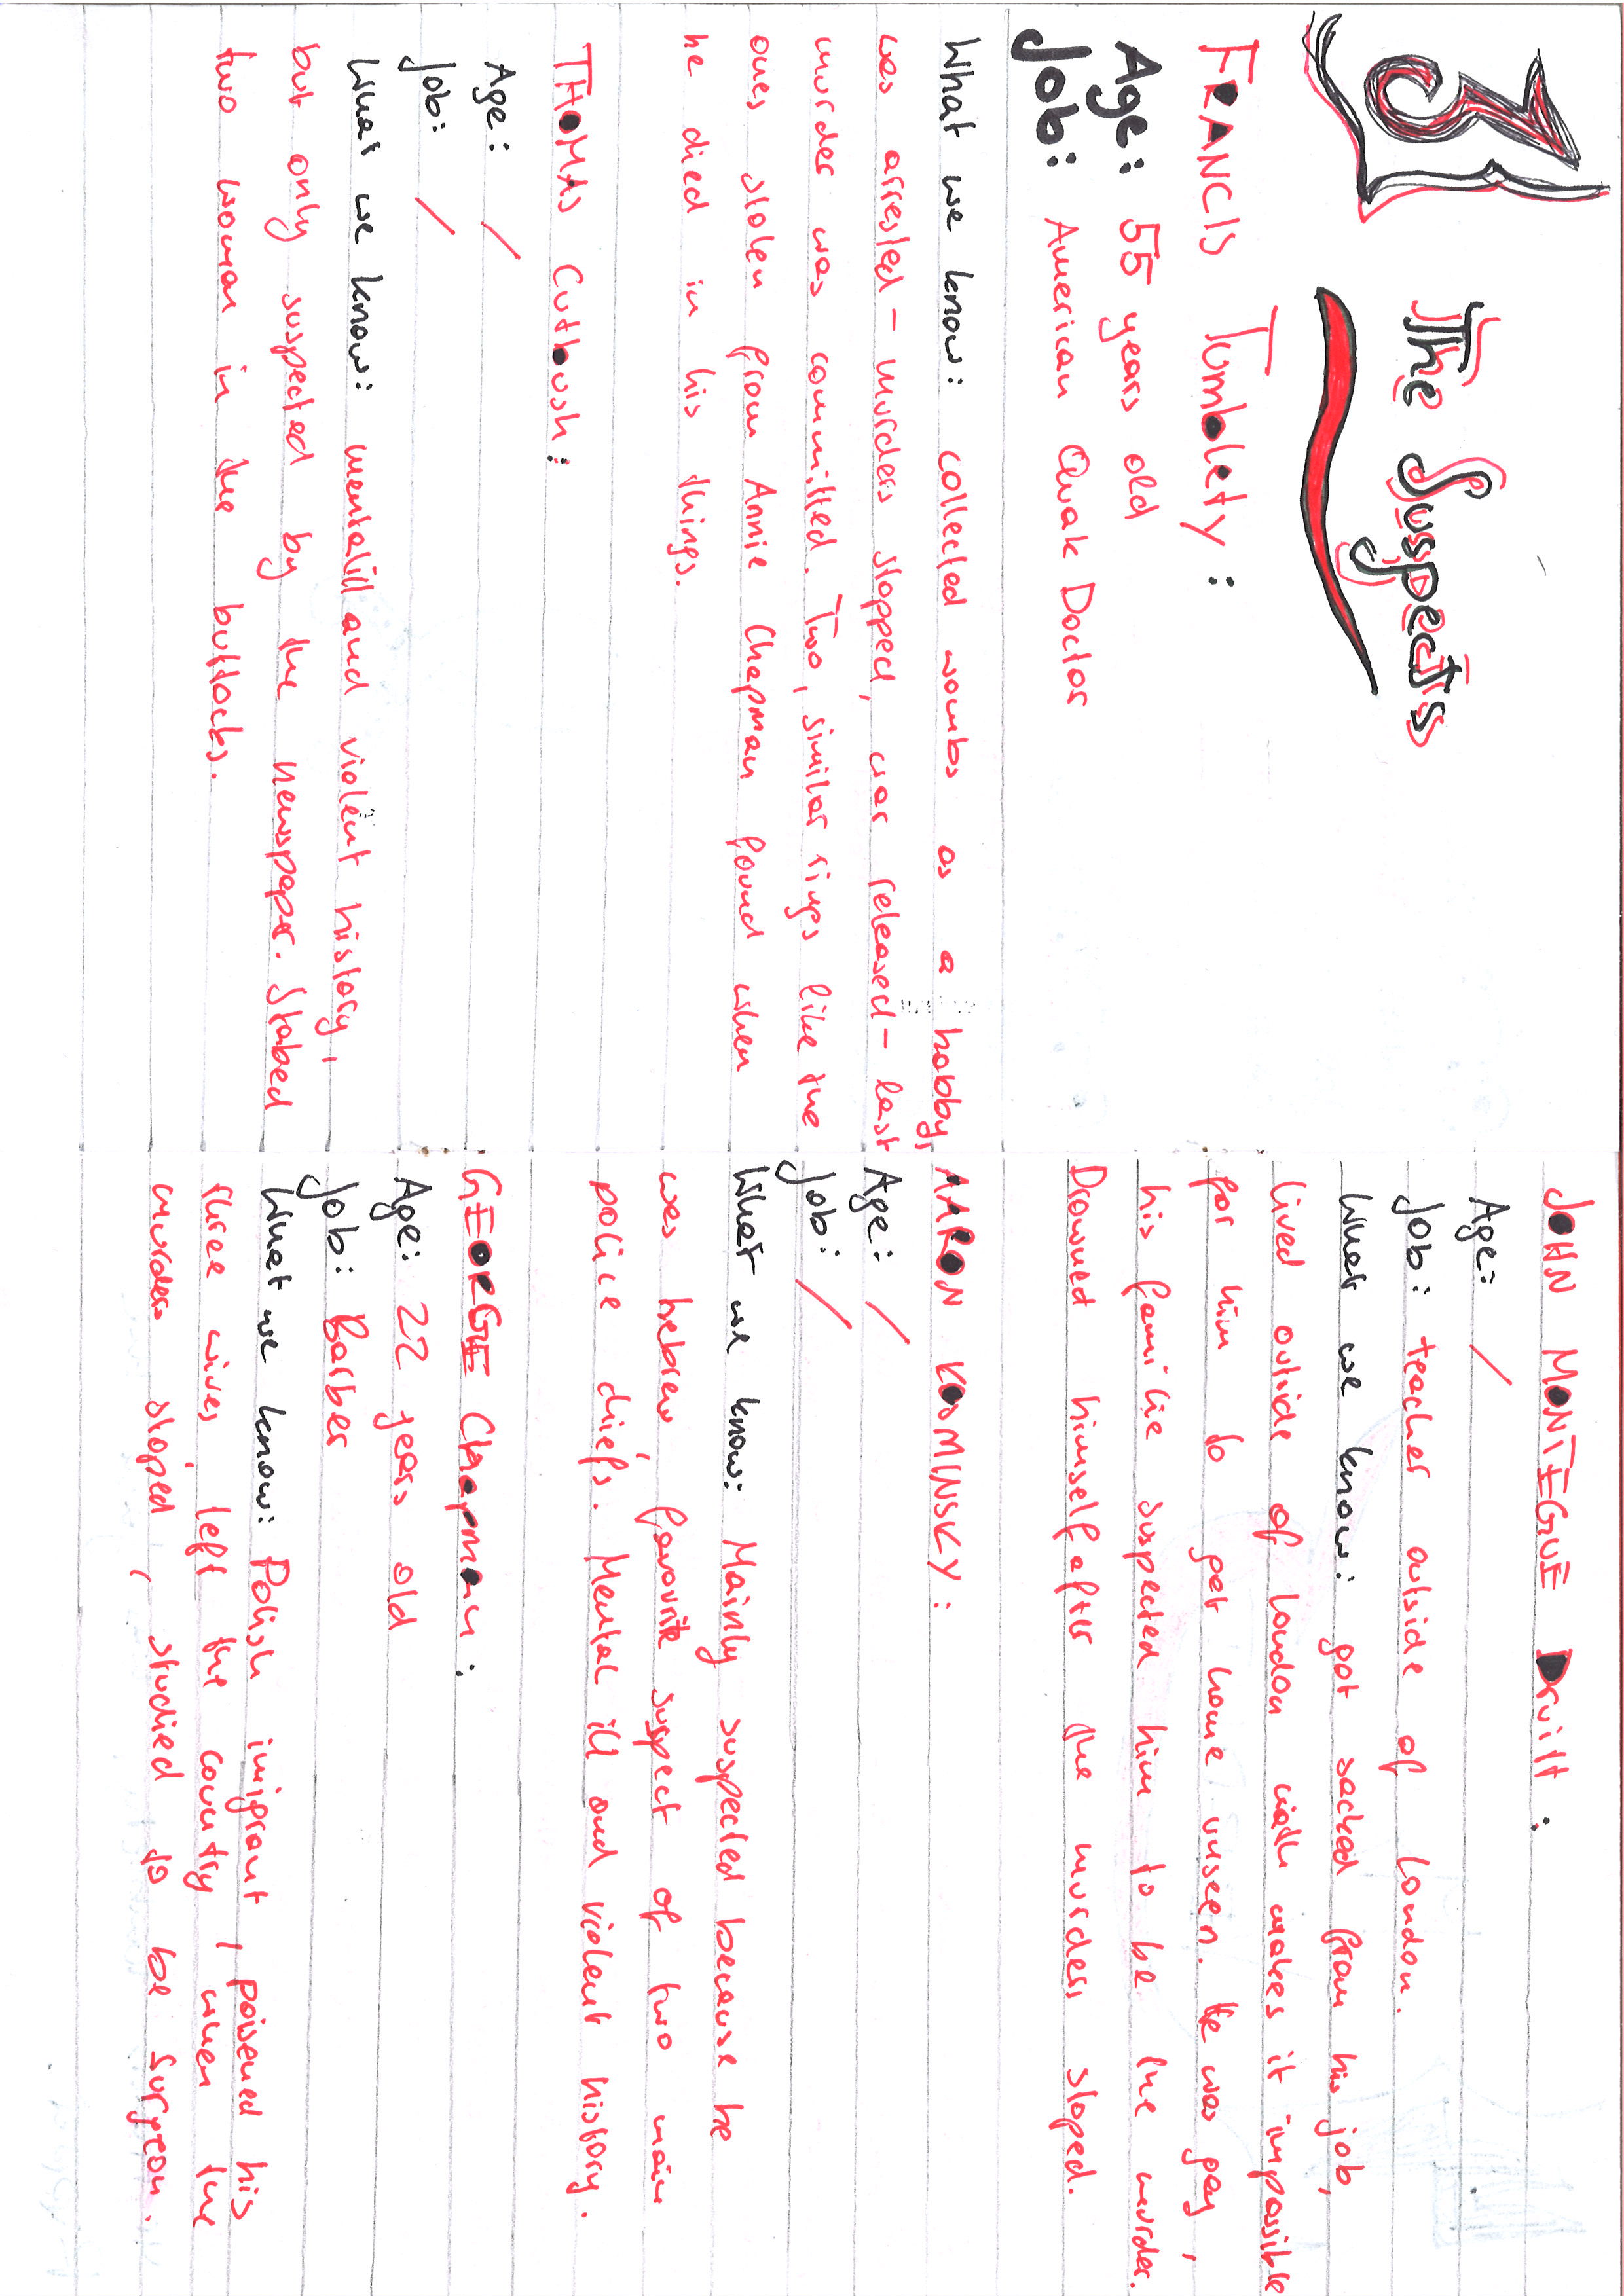 3} The Suspects
FRANCIS Tumblety:
Age: 55 years old
Job: American Quak Doctor
What we know: collected wombs as a hobby,
was arrested - murders stopped, was released - last
murder was committed. Two, similar rings like the
ones stolen from Annie Chapman found when
he died in his things.
THOMAS Cutbush:
Age: /
Job: /
What we know: mentalill and violent history,
but only suspected by the newspaper. Stabed
two woman in the buttocks.
JOHN MONTEGUE Druitt:
Age: /
Job: teacher outside of London.
What we know: got sacked from his job,
lived outside of London wich makes it impossible
for him to get home unseen. He was gay,
his familie suspected him to be the murder.
Drowned himself after the murders stoped.
AARON KOSMINSKY:
Age: /
Job: /
What we know: Mainly suspected because he
was hebrew, favourite suspect of two main
police chiefs. Mental ill and violent history.
GEORGE Chapman:
Age: 22 years old
Job: Barber
What we know: Polish imigrant, poisened his
three wives, left the country, when the
murders stoped, studied to be surgeon.